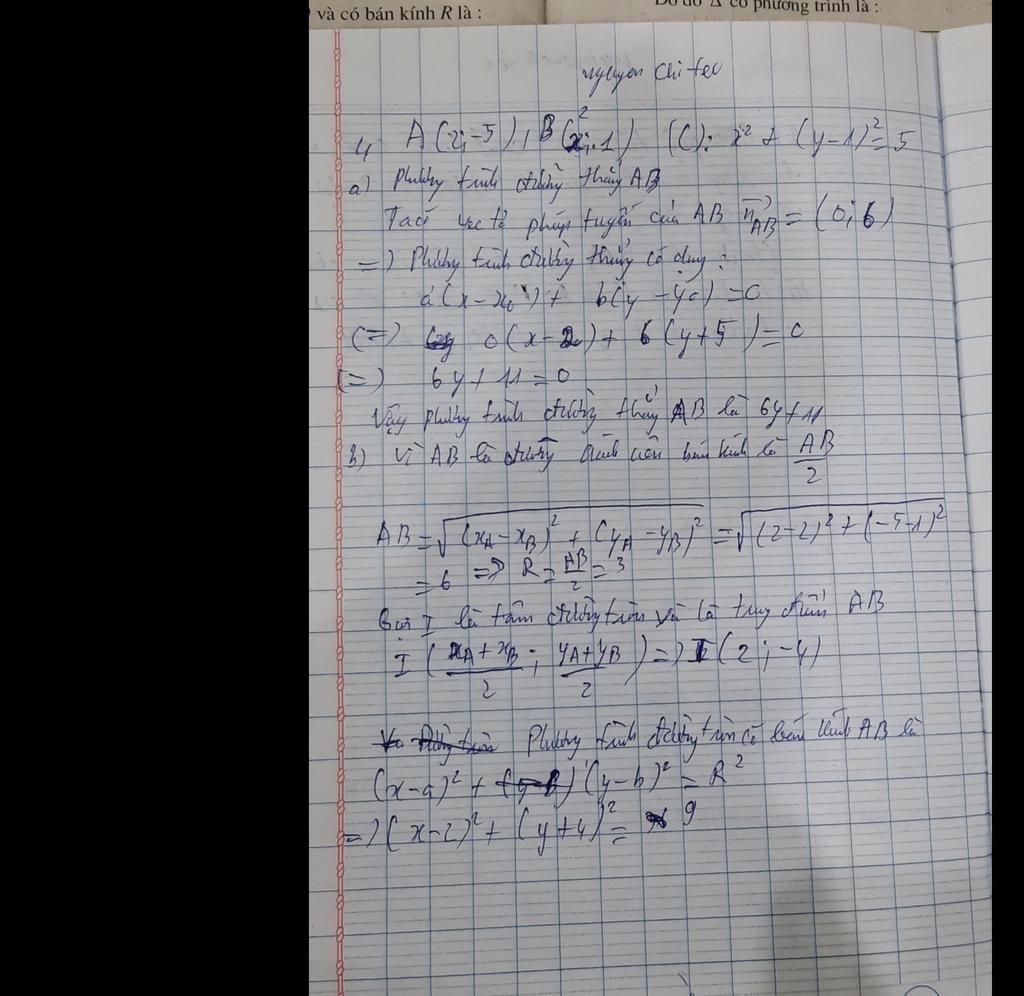 và có bán kính R là :
Do đó Δ có phương trình là :
nguyen chi teo
4 A(2;-5), B(2;1) (C): x² + (y-1)² = 5
a) Phương trình đường thẳng AB
Ta có vec tơ pháp tuyến của AB n⃗AB = (0; 6)
=> Phương trình đường thẳng có dạng :
a(x-x₀) + b(y-y₀) = 0
(=) 0(x-2) + 6(y+5) = 0
(=) 6y + 11 = 0
Vậy phương trình đường thẳng AB là 6y + 11
b) Vì AB là đường kính nên bán kính là AB/2
AB = √((xA-xB)² + (yA-yB)²) = √((2-2)² + (-5-1)²)
= 6 => R = AB/2 = 3
Gọi I là tâm đường tròn và là trung điểm AB
I ((xA+xB)/2 ; (yA+yB)/2) => I(2;-4)
Phương trình đường tròn có bán kính AB là
(x-a)² + (y-b)² = R²
=> (x-2)² + (y+4)² = 9